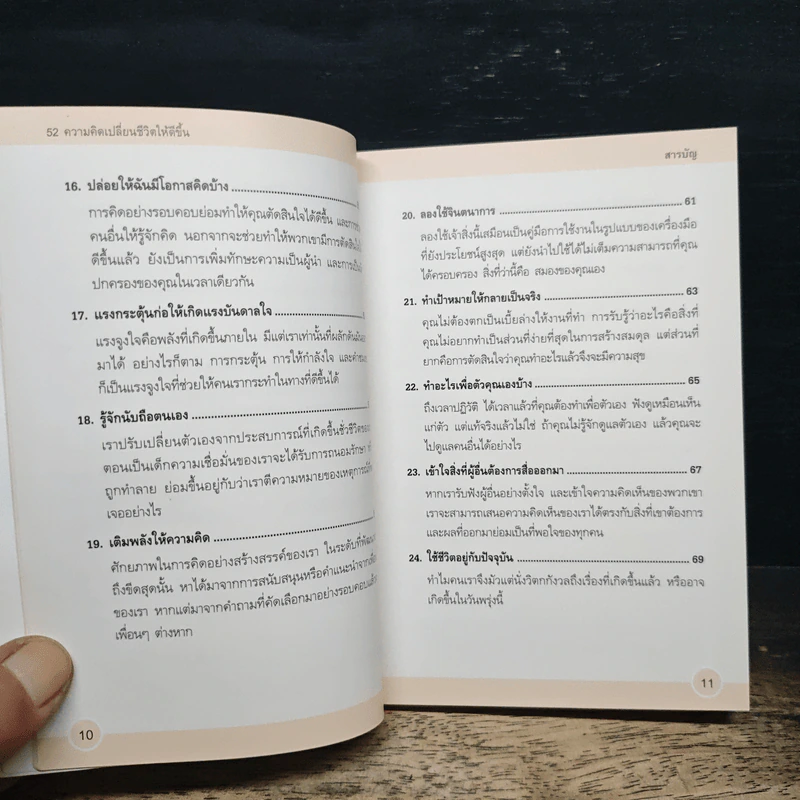 52 ความคิดเปลี่ยนชีวิตให้ดีขึ้น
16. ปล่อยให้ฉันมีโอกาสคิดบ้าง
การคิดอย่างรอบคอบย่อมทำให้คุณตัดสินใจได้ดีขึ้น และการ
คนอื่นให้รู้จักคิด นอกจากจะช่วยทำให้พวกเขามีการตัดสินใจ
ดีขึ้นแล้ว ยังเป็นการเพิ่มทักษะความเป็นผู้นำ และการ
ปกครองของคุณในเวลาเดียวกัน
17. แรงกระตุ้นก่อให้เกิดแรงบันดาลใจ
แรงจูงใจคือพลังที่เกิดขึ้นภายใน มีแต่เราเท่านั้นที่ผลักดัน
มาได้ อย่างไรก็ตาม การกระตุ้น การให้กำลังใจ และ
ก็เป็นแรงจูงใจที่ช่วยให้คนเรากระทำในทางที่ดีขึ้นได้
18. รู้จักนับถือตนเอง
เราปรับเปลี่ยนตัวเองจากประสบการณ์ที่เกิดขึ้นชั่วชีวิต
ตอนเป็นเด็กความเชื่อมั่นของเราจะได้รับการถนอมรักษา
ถูกทำลาย ย่อมขึ้นอยู่กับว่าเราตีความหมายของเหตุการณ์
เจออย่างไร
19. เติมพลังให้ความคิด
ศักยภาพในการคิดอย่างสร้างสรรค์ของเรา ในระดับที่
ถึงขีดสุดนั้น หาได้มาจากการสนับสนุนหรือคำแนะนำจาก
ของเรา หากแต่มาจากคำถามที่คัดเลือกมาอย่างรอบคอบ
เพื่อนๆ ต่างหาก
10
สารบัญ
20. ลองใช้จินตนาการ 61
ลองใช้เจ้าสิ่งนี้เสมือนเป็นคู่มือการใช้งานในรูปแบบของเครื่องมือ
ที่ยังประโยชน์สูงสุด แต่ยังนำไปใช้ได้ไม่เต็มความสามารถที่คุณ
ได้ครอบครอง สิ่งที่ว่านี้คือ สมองของคุณเอง
21. ทำเป้าหมายให้กลายเป็นจริง 63
คุณไม่ต้องตกเป็นเบี้ยล่างให้งานที่ทำ การรับรู้ว่าอะไรคือสิ่งที่
คุณไม่อยากทำเป็นส่วนที่ง่ายที่สุดในการสร้างสมดุล แต่ส่วนที่
ยากคือการตัดสินใจว่าคุณทำอะไรแล้วจึงจะมีความสุข
22. ทำอะไรเพื่อตัวคุณเองบ้าง 65
ถึงเวลาปฏิวัติ ได้เวลาแล้วที่คุณต้องทำเพื่อตัวเอง ฟังดูเหมือนเห็น
แก่ตัว แต่แท้จริงแล้วไม่ใช่ ถ้าคุณไม่รู้จักดูแลตัวเอง แล้วคุณจะ
ไปดูแลคนอื่นได้อย่างไร
23. เข้าใจสิ่งที่ผู้อื่นต้องการสื่อออกมา 67
หากเรารับฟังผู้อื่นอย่างตั้งใจ และเข้าใจความคิดเห็นของพวกเขา
เราจะสามารถเสนอความคิดเห็นของเราได้ตรงกับสิ่งที่เขาต้องการ
และผลที่ออกมาย่อมเป็นที่พอใจของทุกคน
24. ใช้ชีวิตอยู่กับปัจจุบัน 69
ทำไมคนเราจึงมัวแต่นั่งวิตกกังวลถึงเรื่องที่เกิดขึ้นแล้ว หรืออาจ
เกิดขึ้นในวันพรุ่งนี้
11